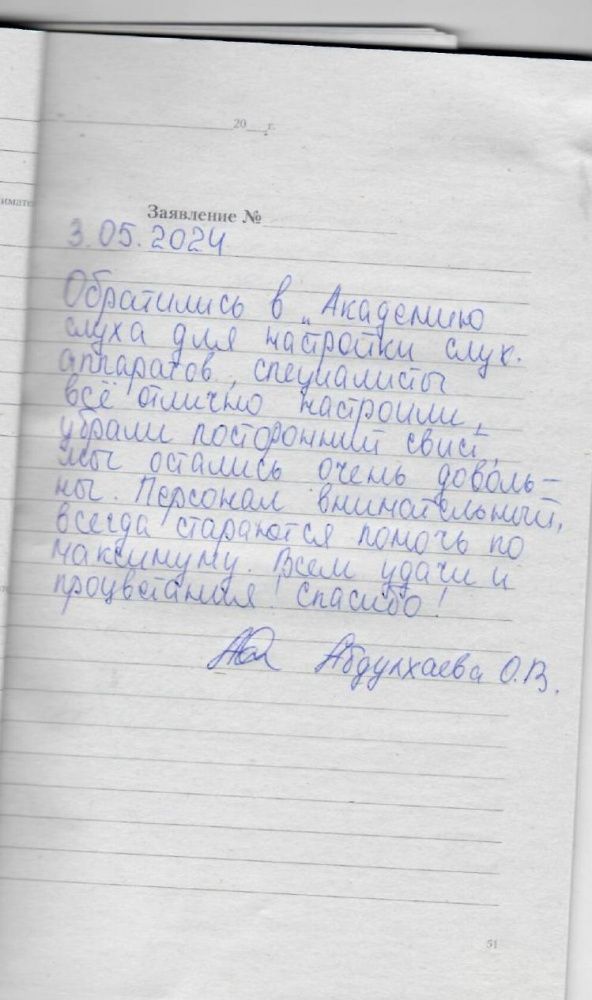 20___г.
имате
Заявление №
3.05.2024
Обратились в „Академию
слуха для настройки слух.
аппаратов, специалисты
всё отлично настроили,
убрали посторонний свист,
мы остались очень доволь-
ны. Персонал внимательный,
всегда стараются помочь по
максимуму. Всем удачи и
процветания! Спасибо!
Абдулхаева О.В.
51